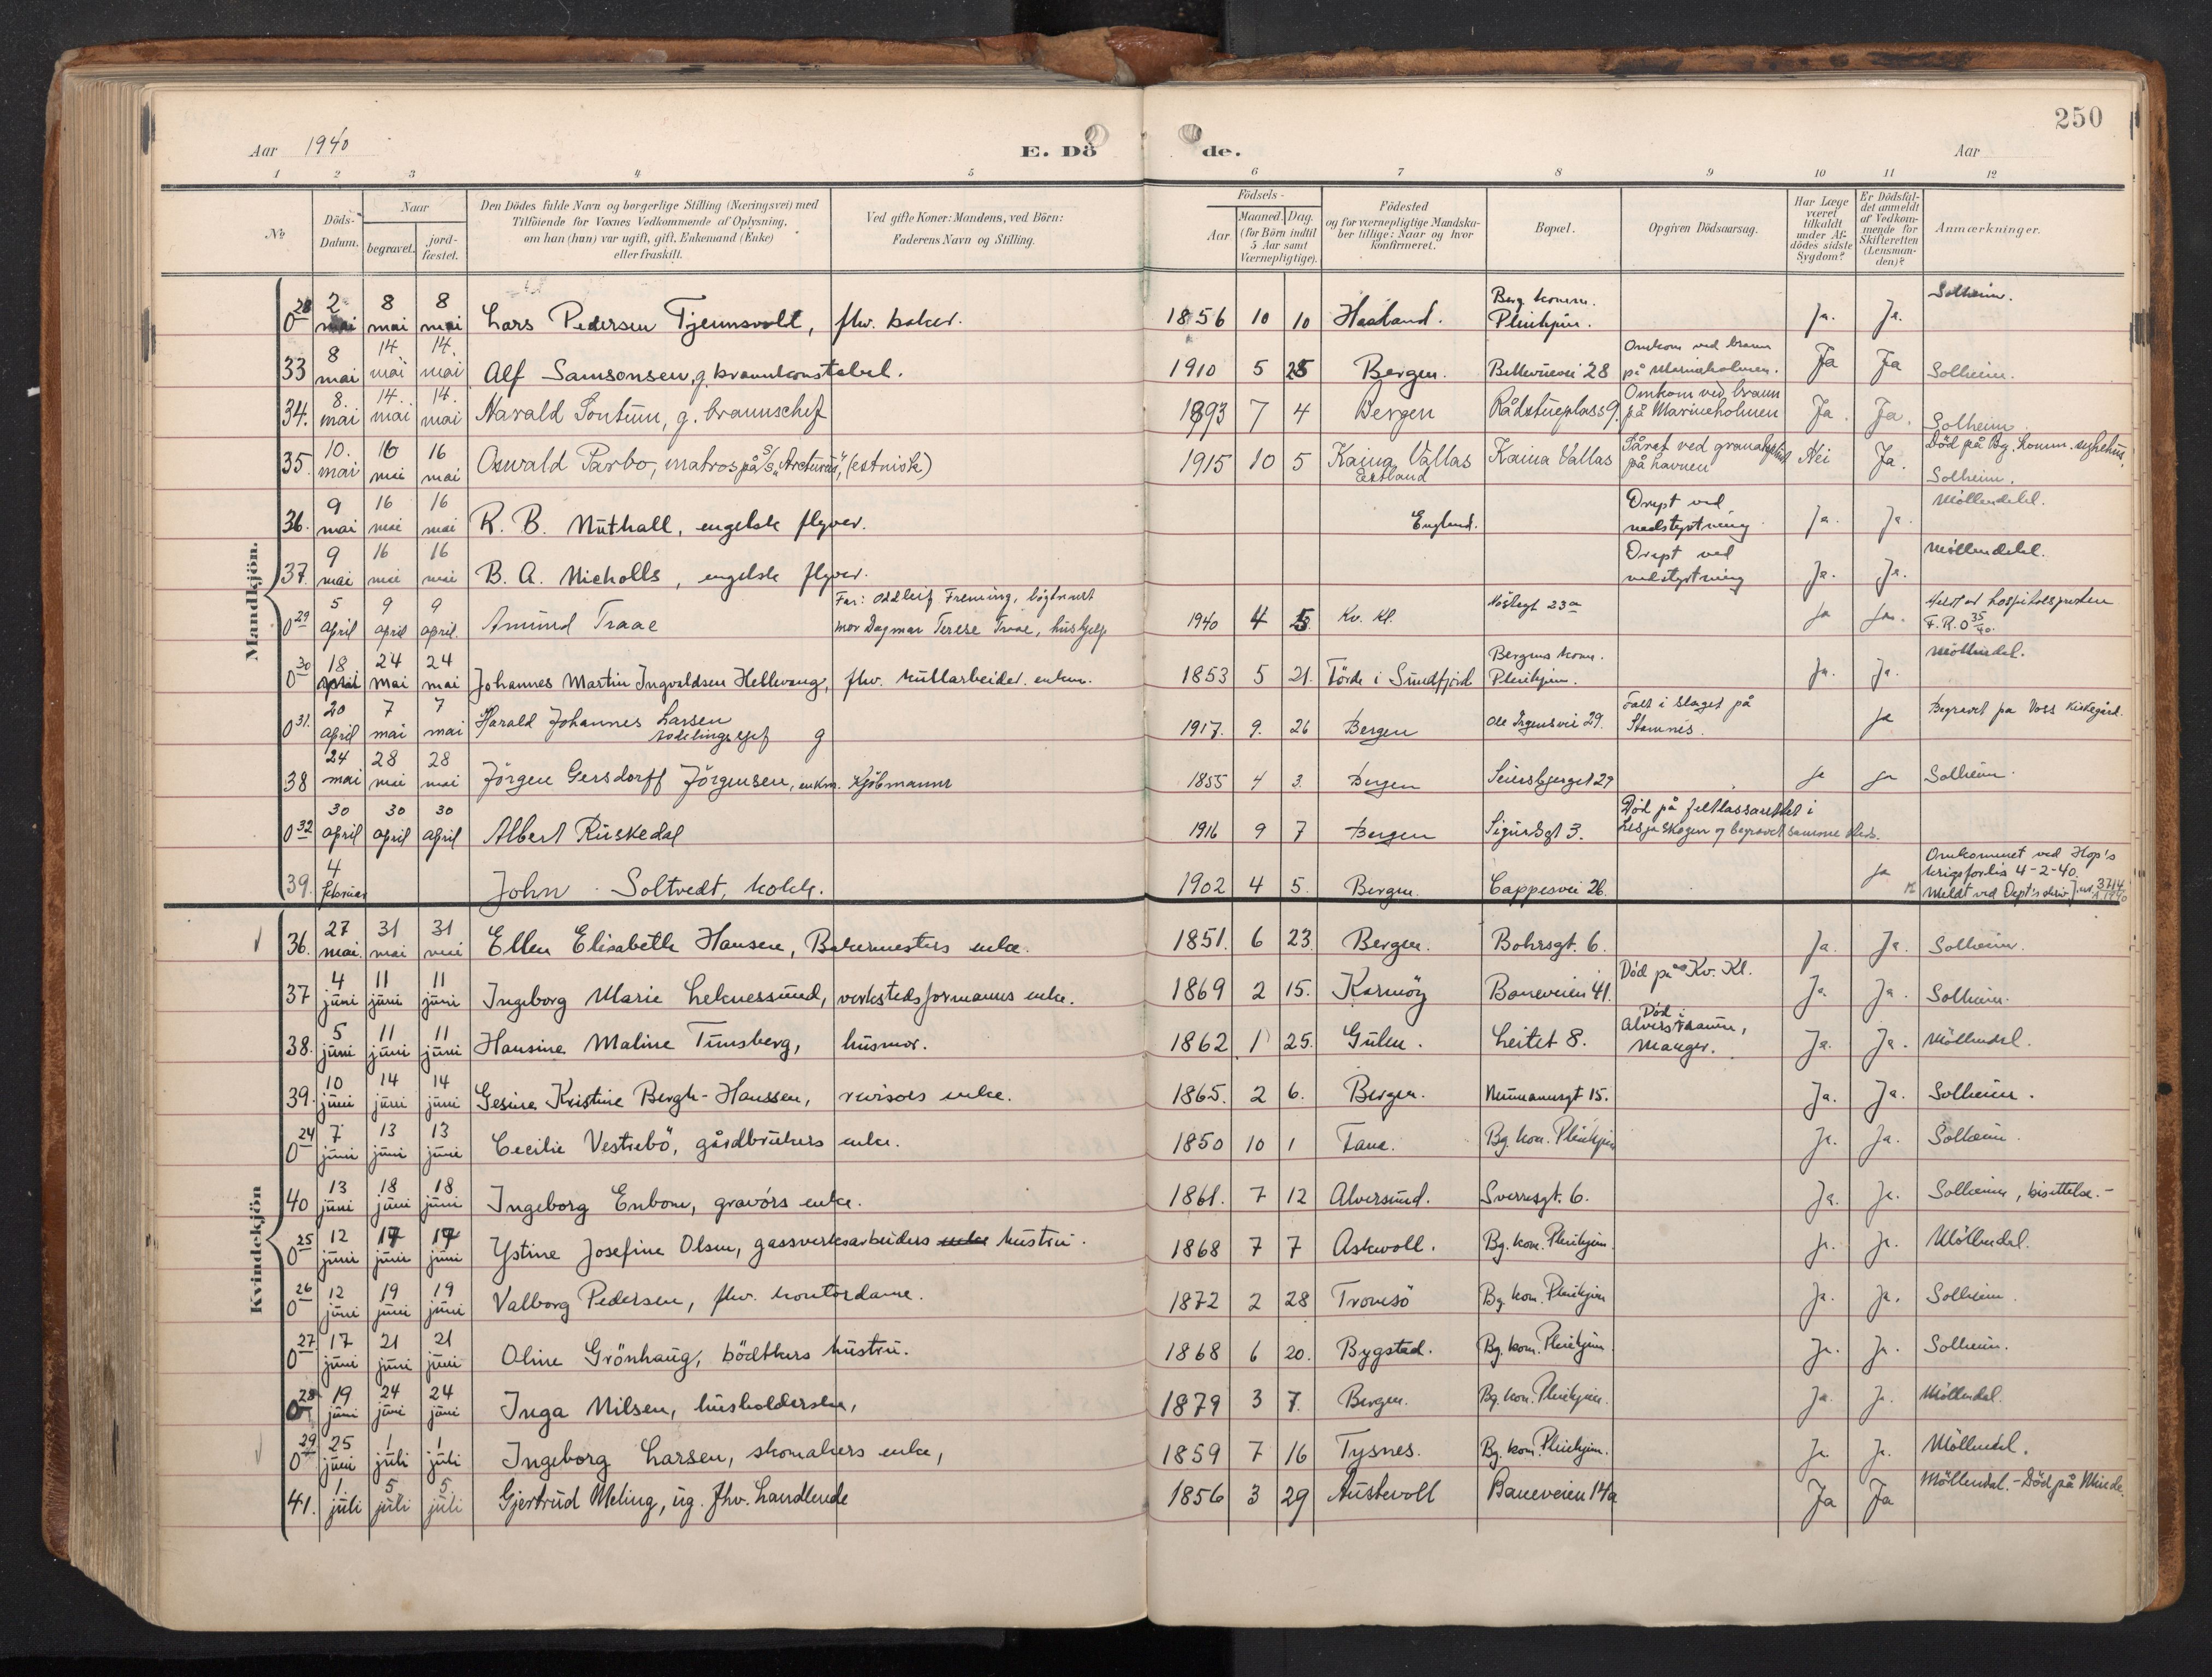 250
Aar 1940 E. Dö de. Aar
1 2 3 4 5 6 7 8 9 10 11 12
№ Döds-Datum. Naar begravet. jord-fæstet. Den Dödes fulde Navn og borgerlige Stilling (Næringsvei) med Tilföiende for Voxnes Vedkommende af Oplysning, om han (hun) var ugift, gift, Enkemand (Enke) eller fraskilt. Ved gifte Koner: Mandens, ved Börn: Faderens Navn og Stilling. Födsels- Aar. Maaned. Dag. (for Börn indtil 5 Aar samt Værnepligtige). Födested og for værnepligtige Mandskaber tillige: Naar og hvor konfirmeret. Bopæl. Opgiven Dödsaarsag. Har Læge været tilkaldt under Afdödes sidste Sygdom? Er Dödsfaldet anmeldt af Vedkommende for Skifteretten (Lensmanden)? Anmærkninger.
Mandkjön.
0 28 2 mai 8 mai 8 mai Lars Pedersen Tjennsvold, fhv. baker. 1856 10 10 Haaland. Berg. komm. Pleiehjem. Ja. Ja. Solheim.
33 8 mai 14 mai 14. mai Alf Samsonsen, g. brannkonstabel. 1910 5 25 Bergen. Bellevuevei 28 Omkom ved brann på Marineholmen. Ja Ja Solheim.
34. 8. mai 14. mai 14. mai Harald Sontum, g. brannschef 1893 7 4 Bergen Rådstueplass 9. Omkom ved brann på Marineholmen Ja. Ja. Solheim.
35. 10. mai 16 mai 16 mai Oswald Parbo, matros på S/S "Arcturus", (estnisk) 1915 10 5 Kaina Vallas Estland Kaina Vallas Såret ved granat på havnen Nei Ja. Död på Bg. komm. sykehus. Solheim.
36. 9 mai 16 mai 16 mai R. B. Nuthall, engelsk flyver. England. Drept ved nedstyrtning Ja. Ja. Möllendal.
37. 9 mai 16 mai 16 mai B. A. Nicholls, engelsk flyver. Drept ved nedstyrtning Ja. Ja. Möllendal.
0 29 5 april 9 april 9 april. Amund Traae Far: Oddleif Fremming, mor Dagmar Terese Traae, hushjelp 1940 4 5. Kv. Kl. Nöstegt 23a Ja Ja. Meldt av hospitalspresten F.R. 0 35/40.
0 30 18 mai 24 mai 24 mai Johannes Martin Ingvaldsen Hellevang, fhv. kullarbeider. enkm. 1853 5 21. Förde i Sundfjord Bergens kom. Pleiehjem. Ja. Ja. Möllendal.
0 31. 20 April 7 mai 7 mai Harald Johannes Larsen avdelingssjef g 1917. 9. 26 Bergen Ole Irgensvei 29. Falt i slaget på Stamnes. Ja Begravet på Voss Kirkegård.
38 24 mai 28 mai 28 mai Jörgen Gersdorff Jörgensen, enkm. Kjöbmann 1855 4 3. Bergen Seiersbjerget 29 Ja Ja Solheim.
0 32 30 April 30 April 30 April Albert Ruskedal 1916 9 7 Bergen Sigurdsgt 3. Död på feltlassarettet i Lesjaskogen og begravet samme sted.
39. 4 februar John Soltvedt, kokk. 1902 4 5. Bergen. Cappesvei 26. Ja Omkommet ved Hop's krigsforlis 4-2-40. Meldt ved Dept's skriv J.nr 3714 A 1940
Kvindekjön
36. 27 mai. 31 mai 31 mai Ellen Elisabeth Hansen, Bakermesters enke. 1851. 6 23. Bergen. Bohrsgt. 6. Ja. Ja. Solheim.
37 4 juni 11 juni 11 juni Ingeborg Marie Leknessund, verkstedsformanns enke. 1869 2 15. Karmöy Baneveien 41. Död på Kv. Kl. Ja. Ja. Solheim.
38. 5 juni 11 juni 11 juni Hansine Maline Tunsberg, husmor. 1862 1 25. Gulen. Leitet 8. Död i Alverstraum, Manger. Ja. Ja. Möllendal.
39. 10 juni 14 juni 14 juni Gesine Kristine Bergh-Hanssen, revisors enke. 1865. 2 6. Bergen. Neumannsgt 15. Ja. Ja. Solheim.
0 24 7 juni 13 juni 13 juni Cecilie Vestrebö, gårdbrukers enke. 1850 10 1 Fane. Bg. kom. Pleiehjem Ja. Ja. Solheim.
40 13 juni 18 juni 18 juni Ingeborg Enbom, gravörs enke. 1861. 7 12 Alversund. Sverresgt. 6. Ja. Ja. Solheim, bisettelse.-
0 25 12 juni 17 juni 17 juni Ystine Josefine Olsen, gassverksarbeiders enke hustru. 1868 7 7 Askvoll. Bg. kom. Pleiehjem. Ja. Ja. Möllendal.
0 26 12 juni 19 juni 19 juni Valborg Pedersen, fhv. kontordame. 1872 2 28 Tromsö Bg. kom. Pleiehjem Ja. Ja. Solheim.
0 27 17 juni 21 juni 21 juni Oline Grönhaug, bödtkers hustru. 1868 6 20. Bygstad. Bg. kom. Pleiehjem. Ja. Ja. Solheim.
0 28 19 juni 24 juni 24 juni Inga Nilsen, husholderske, 1879 3 7. Bergen. Bg. kom. Pleiehjem. Ja. Ja. Möllendal.
0 29 25 juni 1 juli 1 juli Ingeborg Larsen, skomakers enke, 1859 7 16 Tysnes. Bg. kom. Pleiehjem. Ja. Ja. Möllendal.
41. 1. juli 5 juli 5. juli Gjertrud Meling, ug. fhv. handlende 1856 3 29 Austevoll Baneveien 14a Ja Ja Möllendal.-Död på Minde.